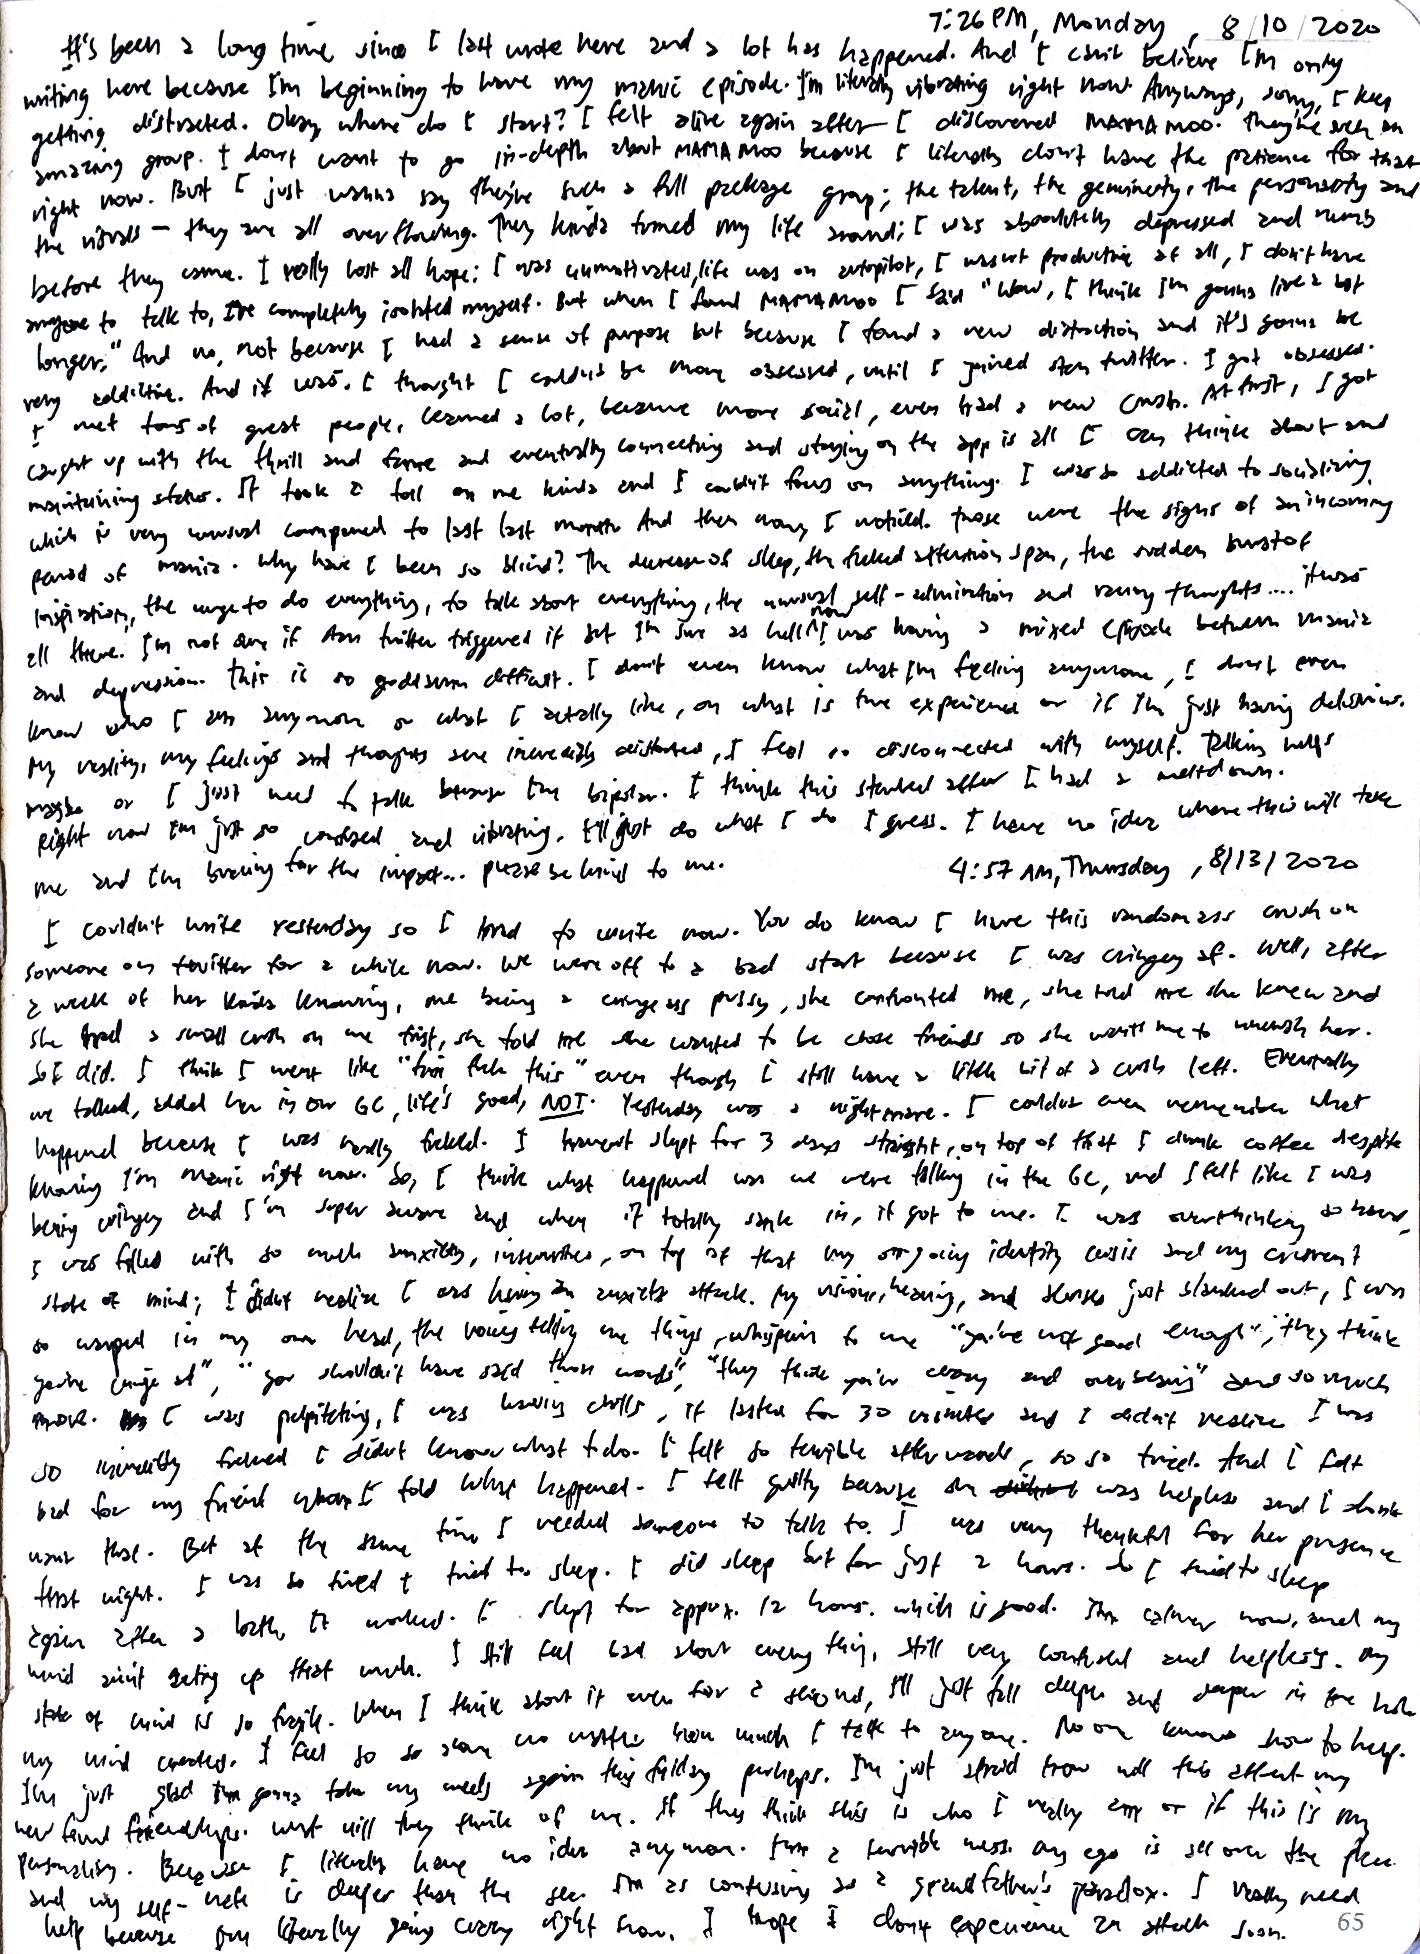 7:26 PM, Monday, 8/10/2020
It's been a long time since I last wrote here and a lot has happened. And I can't believe I'm only
writing here because I'm beginning to have my manic episode. I'm literally vibrating right now. Anyways, sorry, I keep
getting distracted. Okay where do I start? I felt alive again after I discovered MAMAMOO. They're such an
amazing group. I don't want to go in-depth about MAMAMOO because I literally don't have the patience for that
right now. But I just wanna say they're such a full package group; the talent, the genuinety, the personality and
the visuals — they are all overflowing. They kinda turned my life around; I was absolutely depressed and numb
before they came. I really lost all hope; I was unmotivated, life was on autopilot, I wasn't productive at all, I don't have
anyone to talk to, I've completely isolated myself. But when I found MAMAMOO I said "Wow, I think I'm gonna live a lot
longer." And no, not because I had a sense of purpose but because I found a new distraction and it's gonna be
very addictive. And it was. I thought I couldn't be more obsessed, until I joined stan twitter. I got obsessed.
I met tons of great people, learned a lot, became more social, even had a new crush. At first, I got
caught up with the thrill and fame and eventually connecting and staying on the app is all I can think about and
maintaining status. It took a toll on me kinda and I couldn't focus on anything. I was so addicted to socializing
which is very unusual compared to last last month. And then now, I noticed. Those were the signs of an incoming
period of mania. Why have I been so blind? The decrease of sleep, the fucked attention span, the sudden burst of
inspiration, the urge to do everything, to talk about everything, the unusual self-admiration and racing thoughts.... it was
all there. I'm not sure if stan twitter triggered it but I'm sure as hell now I was having a mixed episode between mania
and depression. This is so goddamn difficult. I don't even know what I'm feeling anymore, I don't even
know who I am anymore or what I actually like, or what is true experience or if I'm just having delusions.
My reality, my feelings and thoughts are incredibly distorted, I feel so disconnected with myself. Talking helps
maybe or I just need to talk because I'm bipolar. I think this started after I had a meltdown.
Right now I'm just so confused and vibrating. I'll just do what I do I guess. I have no idea where this will take
me and I'm bracing for the impact... please be kind to me.
4:57 AM, Thursday, 8/13/2020
I couldn't write yesterday so I tried to write now. You do know I have this random ass crush on
someone on twitter for a while now. We were off to a bad start because I was cringey af. Well, after
a week of her kinda knowing, me being a cringe ass pussy, she confronted me, she told me she knew and
she had a small crush on me first, she told me she wanted to be close friends so she wants me to uncrush her.
So I did. I think I went like "fine fuck this" even though I still have a little bit of a crush left. Eventually
we talked, added her in our GC, life's good, NOT. Yesterday was a nightmare. I couldn't even remember what
happened because I was really fucked. I haven't slept for 3 days straight, on top of that I drank coffee despite
knowing I'm manic right now. So, I think what happened was we were talking in the GC, and I felt like I was
being cringey and I'm super aware and when it totally sank in, it got to me. I was overthinking so hard,
I was filled with so much anxiety, insecurities, on top of that my ongoing identity crisis and my current
state of mind; I didn't realize I was having an anxiety attack. My vision, hearing, and senses just blanked out, I was
so warped in my own head, the voices telling me things, whispering to me "you're not good enough", "they think
you're cringe af", "you shouldn't have said those words", "they think you're crazy and overbearing" and so much
more. I was palpitating, I was having chills, it lasted for 30 minutes and I didn't realize I was
so incredibly fucked I didn't know what to do. I felt so terrible afterwards, so so tired. And I felt
bad for my friend whom I told what happened. I felt guilty because she was helpless and I don't
want that. But at the same time I needed someone to talk to. I was very thankful for her presence
that night. I was so tired I tried to sleep. I did sleep but for just 2 hours. So I tried to sleep
again after a bath, it worked. I slept for approx. 12 hours. which is good. I'm calmer now, and my
mind ain't acting up that much. I still feel bad about everything, still very confused and helpless. My
state of mind is so fragile. When I think about it even for a second, I'll just fall deeper and deeper in the hole
my mind created. I feel so so alone no matter how much I talk to anyone. No one knows how to help.
I'm just glad I'm gonna take my meds again this friday perhaps. I'm just afraid how will this affect my
new found friendships. What will they think of me. If they think this is who I really am or if this is my
personality. Because I literally have no idea anymore. I'm a terrible mess. My ego is all over the place
and my self-hate is deeper than the sea. I'm as confusing as a grandfather's paradox. I really need
help because I'm literally going crazy right now. I hope I don't experience an attack soon.
65